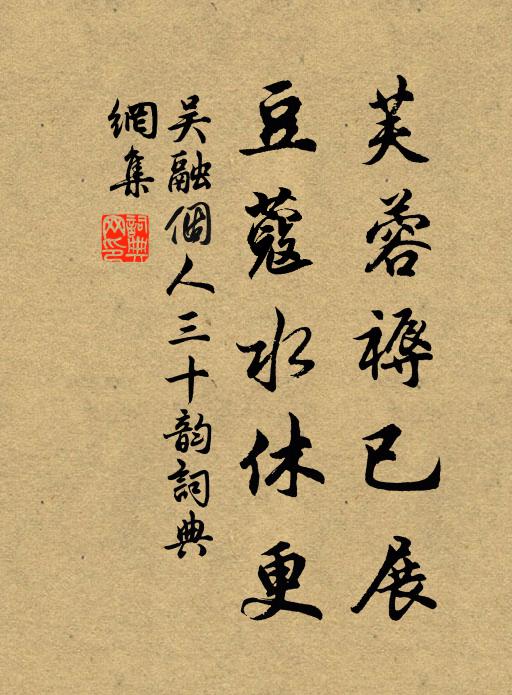 芙蓉褥已展
豆蔻水休更
吴融個人三十韵詞典
網集
詞典网印